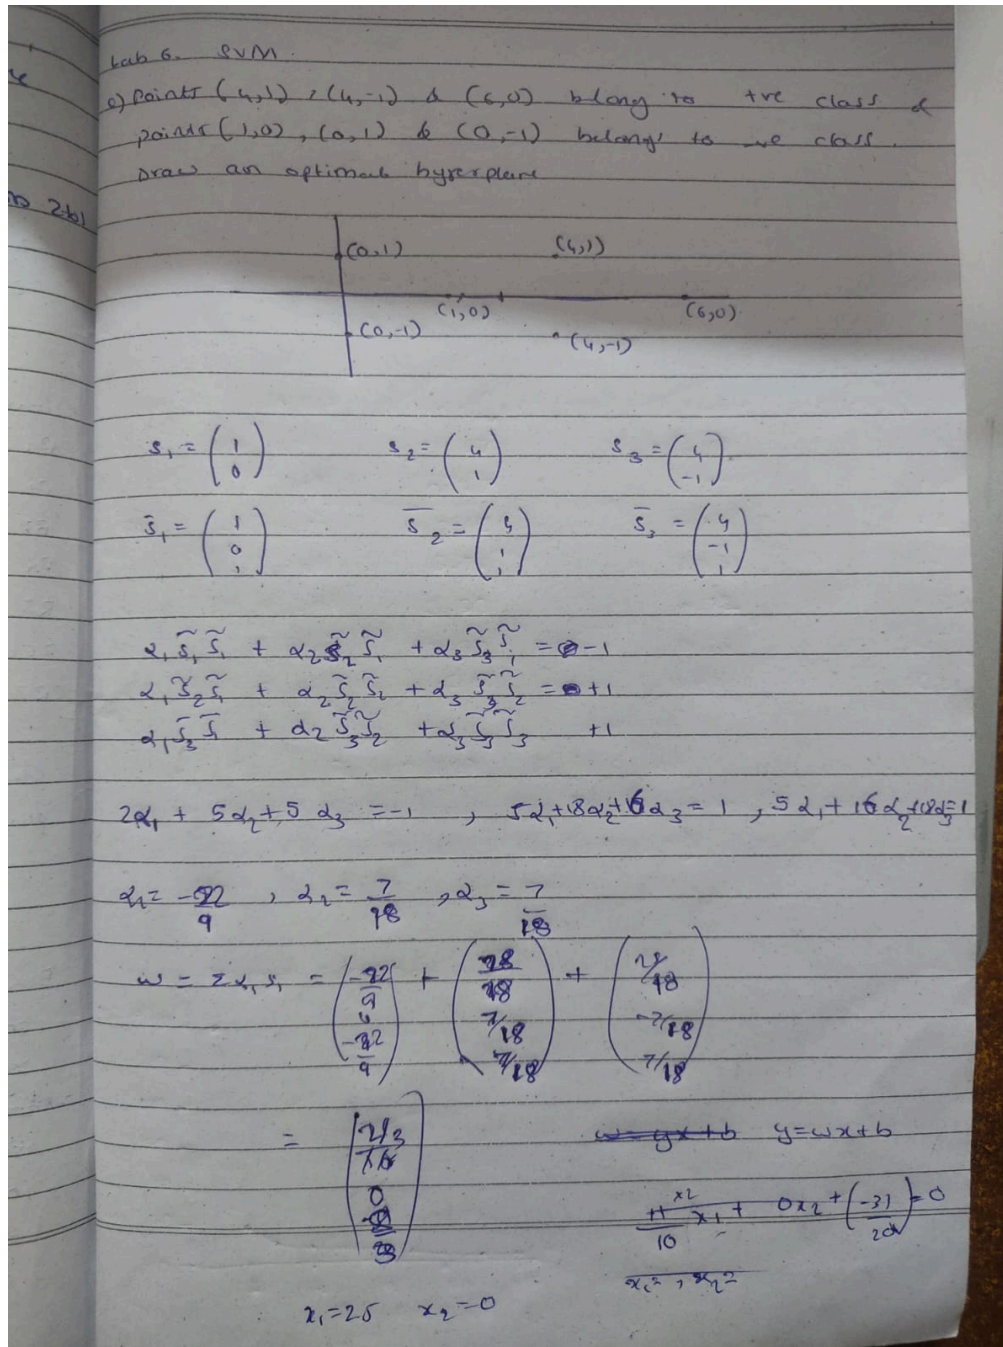 Lab 6. SVM
Q) Points (4,1), (4,-1) & (6,0) belong to +ve class &
points (1,0), (0,1) & (0,-1) belongs to -ve class.
Draw an optimal hyperplane
2-b)
(0,1) (4,1)
(1,0) (6,0)
(0,-1) (4,-1)
s₁ = (1 0) s₂ = (4 1) s₃ = (4 -1)
s̄₁ = (1 0 1) s̄₂ = (4 1 1) s̄₃ = (4 -1 1)
α₁ s̃₁ s̃₁ + α₂ s̃₂ s̃₁ + α₃ s̃₃ s̃₁ = -1
α₁ s̃₂ s̃₁ + α₂ s̃₂ s̃₂ + α₃ s̃₃ s̃₂ = +1
α₁ s̃₃ s̃₁ + α₂ s̃₃ s̃₂ + α₃ s̃₃ s̃₃ +1
2α₁ + 5α₂ + 5α₃ = -1 , 5α₁+18α₂+16α₃ = 1 , 5α₁+16α₂+18α₃=1
α₁ = -22/9 , α₂ = 7/18 , α₃ = 7/18
w = Σα₁s₁ = (-22/9 0 -22/9) + (28/18 7/18 7/18) + (28/18 -7/18 7/18)
= y=wx+b
x₁ + 0x₂ + =0
x₁= , x₂=
x₁=25 x₂=0